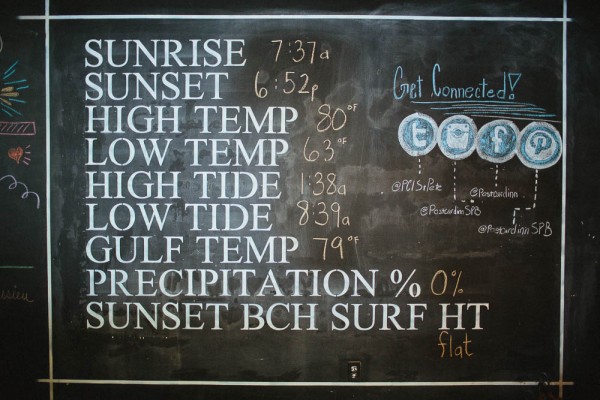 SUNRISE 7:37a
SUNSET 6:52p
HIGH TEMP 80°F
LOW TEMP 63°F
HIGH TIDE 1:38a
LOW TIDE 8:39a
GULF TEMP 79°F
PRECIPITATION % 0%
SUNSET BCH SURF HT
flat
Get Connected!
@PCIStPete
@Postcardinn
@PostcardinnSPB
@PostcardinnSPB